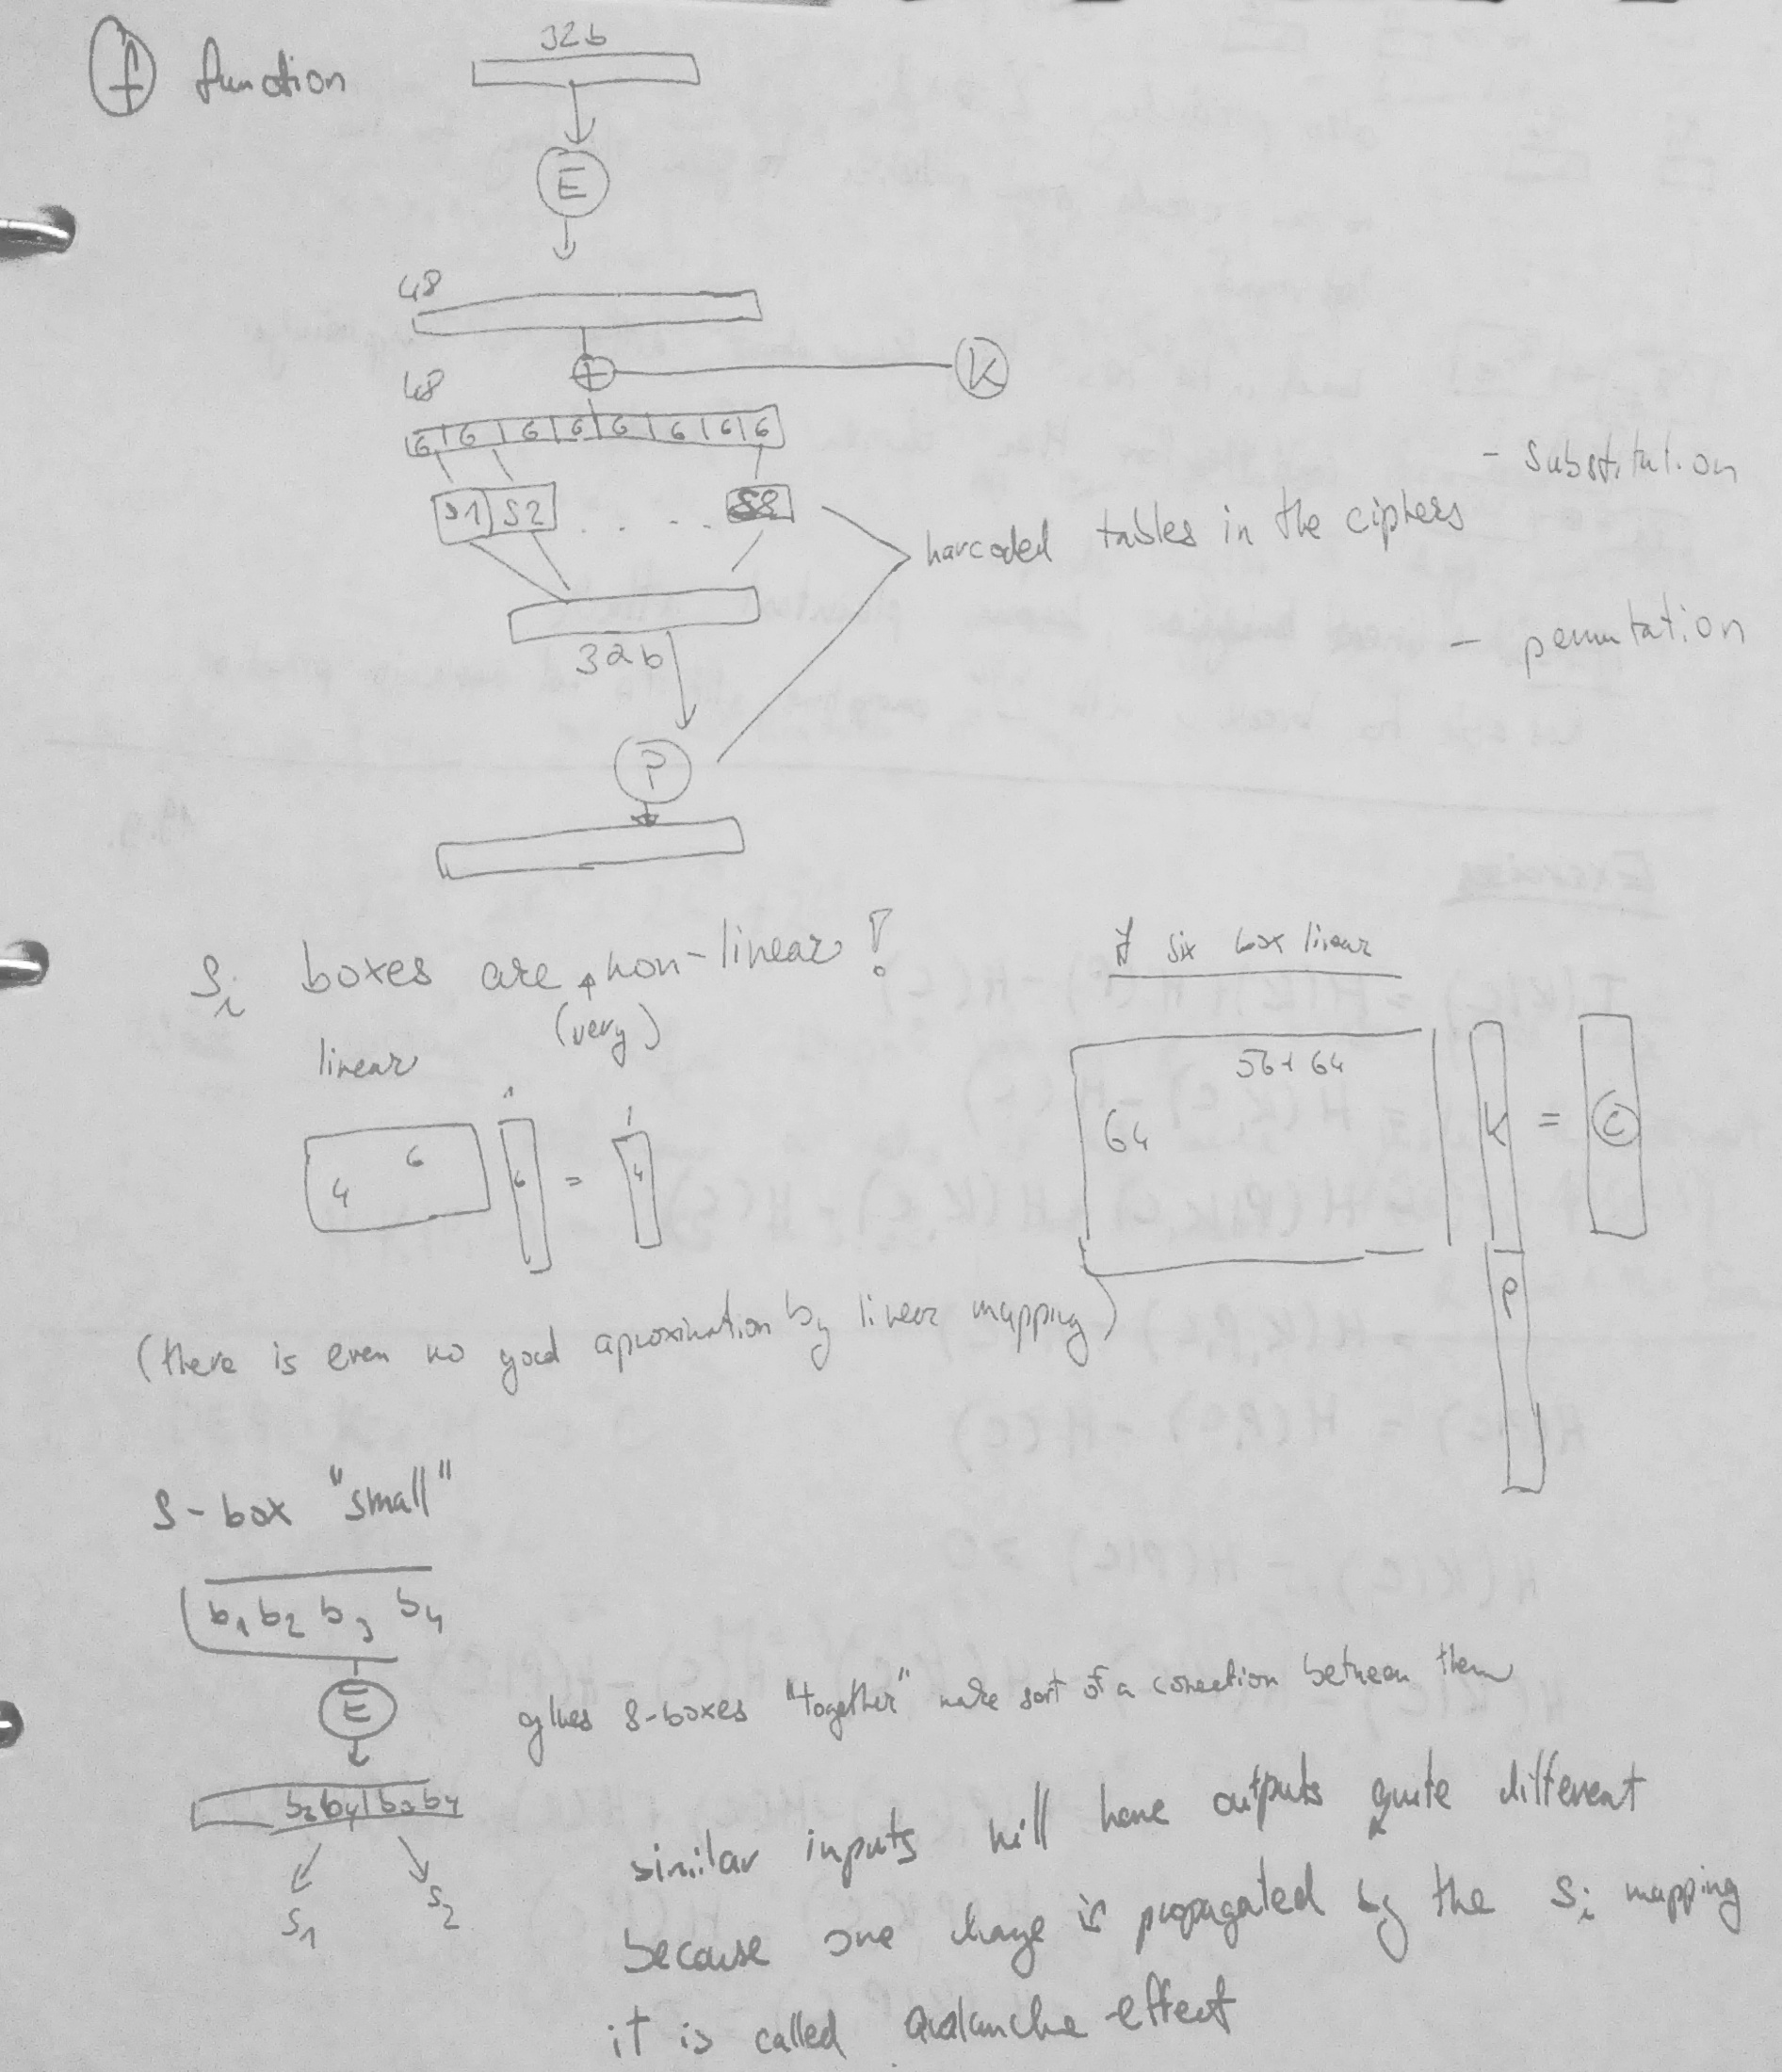 f function
32b
E
48
K
48
6 6 6 6 6 6 6 6
S1 S2 . . . . S8
- substitution
harcoded tables in the ciphers
32b
- permutation
P
Si boxes are non-linear!
(very)
if six box linear
linear
56+64
64
K = C
1 1
6
4 6 = 4
P
(there is even no good aproximation by linear mapping)
S-box "small"
b1 b2 b3 b4
E
glues S-boxes "together" make sort of a conection between them
b3b4|b3b4
S1 S2
similar inputs will have outputs quite different
because one change is propagated by the Si mapping
it is called avalanche effect